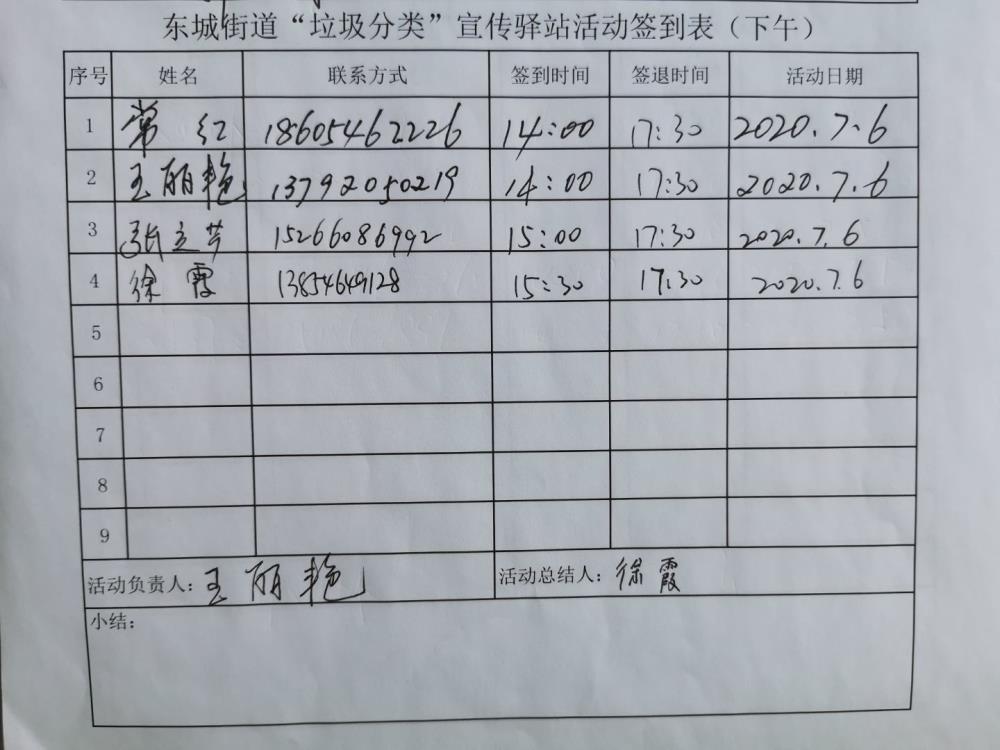 东城街道“垃圾分类”宣传驿站活动签到表（下午）
序号 姓名 联系方式 签到时间 签退时间 活动日期
1 常红 18605462226 14:00 17:30 2020.7.6
2 王丽艳 13792050219 14:00 17:30 2020.7.6
3 张立芹 15266086992 15:00 17:30 2020.7.6
4 徐霞 13854649128 15:30 17:30 2020.7.6
5
6
7
8
9
活动负责人：王丽艳 活动总结人：徐霞
小结：